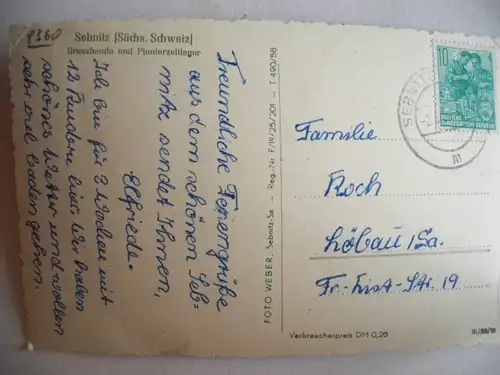 8360
Sebnitz [Sächs. Schweiz]
Grenzbaude und Pionierzeltlager
Freundliche Feriengrüße
aus dem schönen Seb=
nitz sendet Ihnen,
Elfriede.
Ich bin für 3 Wochen mit
12 Kindern hier. Wir haben
schönes Wetter und wollen
sehr viel baden gehen.
FOTO WEBER, Sebnitz-Sa - Reg.-Nr. F/III/25/201 - T 490/58
10
SEBNITZ
m
Familie
Koch
Löbau/Sa.
Fr.-List-Str. 19
Verbraucherpreis DM 0,26
III/28/18